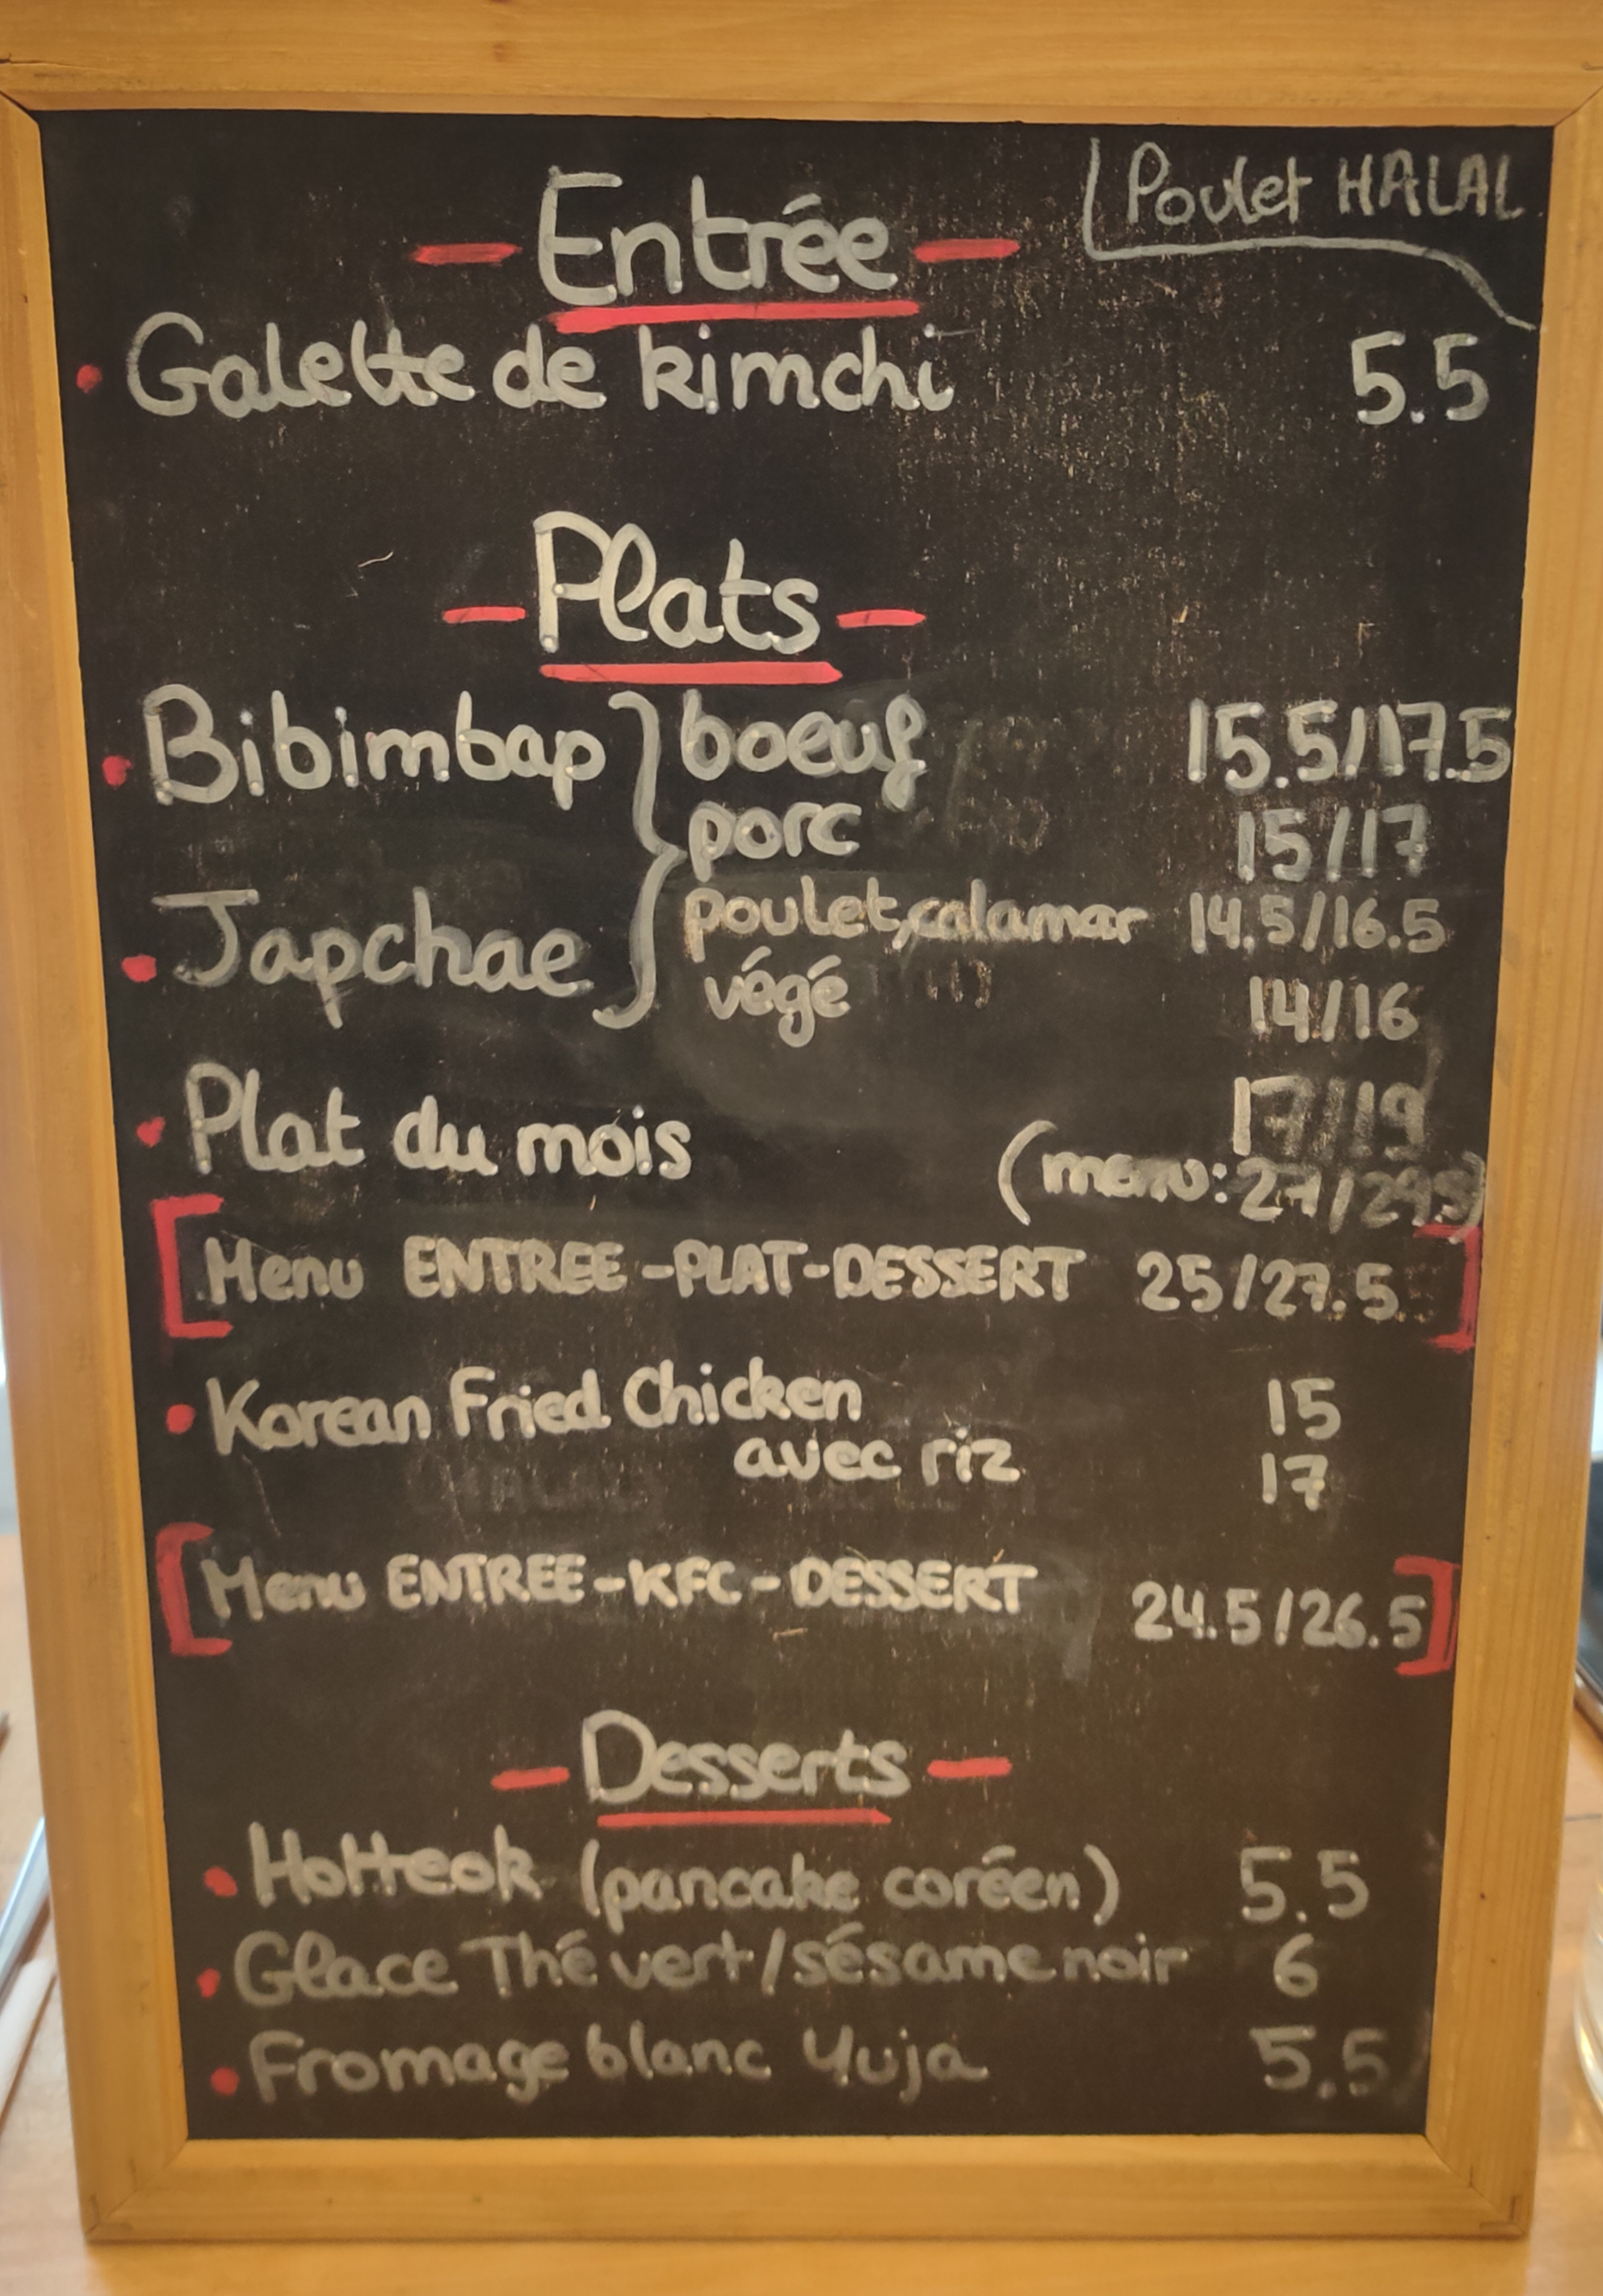 Poulet HALAL
Entrée
Galette de kimchi 5.5
Plats
Bibimbap boeuf 15.5/17.5
porc 15/17
Japchae poulet, calamar 14.5/16.5
végé 14/16
Plat du mois 17/19
(menu: 27/29.5)
[Menu ENTREE-PLAT-DESSERT 25/27.5]
Korean Fried Chicken 15
avec riz 17
[Menu ENTREE-KFC-DESSERT 24.5/26.5]
Desserts
Hotteok (pancake coréen) 5.5
Glace Thé vert/sésame noir 6
Fromage blanc Yuja 5.5